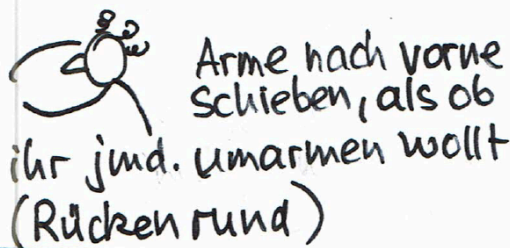 Arme nach vorne
schieben, als ob
ihr jmd. umarmen wollt
(Rücken rund)